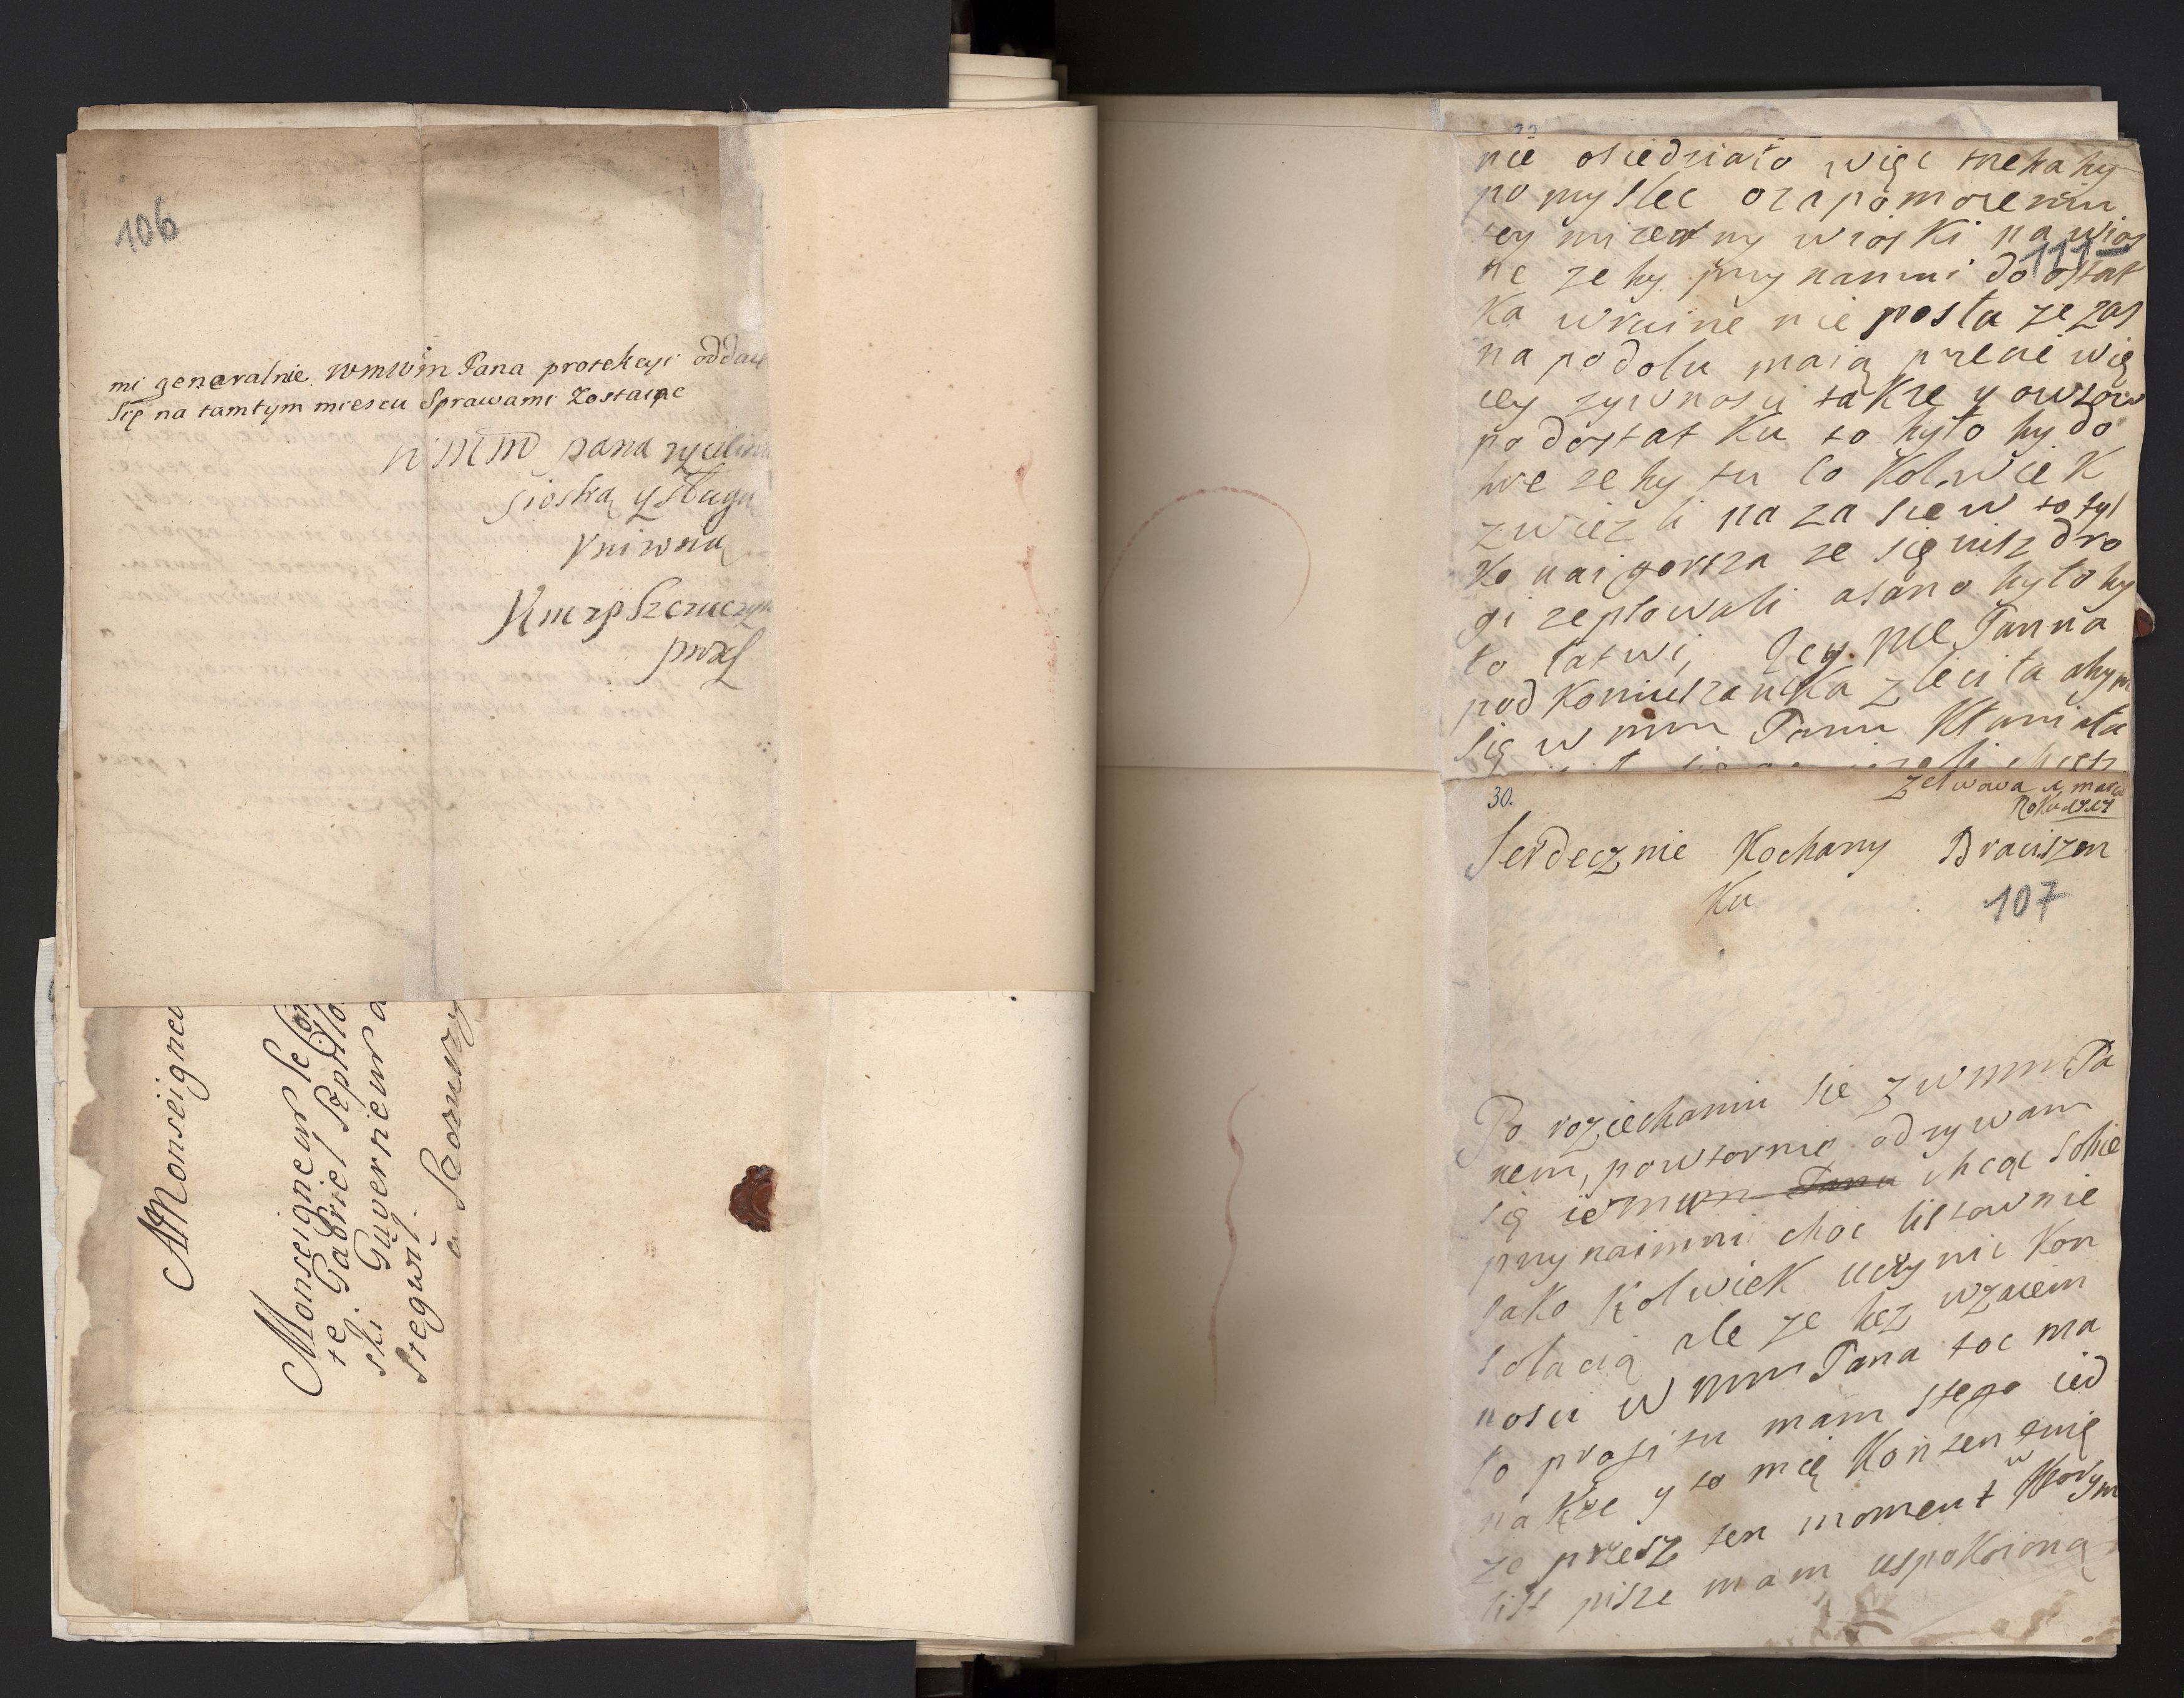 106
mi generalnie WMWM Pana protekcyi oddaię
Się na tamtym miescu Sprawami Zostaiąc
WMM pana zyczliwą
siostrą y sługą
Kmzp Szemczyn
Monseigneu
Monseigneur le Com
te Gabriel Szptilo
ski. Guverneur a
a
nie osiedziało więc trzeba by
pomyslec o zapomozeniu
tey mizerny wioski na wios
111
ne ze by przynanmi do ostat
ka wruine nie posła ze zas
na podolu maią przecie wię
cey zywnosci takze y owsow
podostatku to było by do
bre ze by tu co kolwiek
zwiezli na zasiew to tyl
ko nai gorsza ze się nisz dro
gi zepsowali a sano było by
to łatwi, Jey Mc Panna
pod Koniuszanka zleciła abym
się w mm Panu Kłaniała
30.
Roku
Serdecznie Kochany Braciszen
Ku
107
Po roziechaniu sie z w mm Pa
nem, powtornie odzywam
się chcąc sobie
przynaimni choc listownie
Jako Kolwiek uczynic Kon
solacią ale ze bez wzaiem
nosci W mm Pana toc ma
ło profitu mam stego ied
nakze y to mię Kontentuię
ze przesz ten moment w Ktorym
list pisze mam uspokoioną